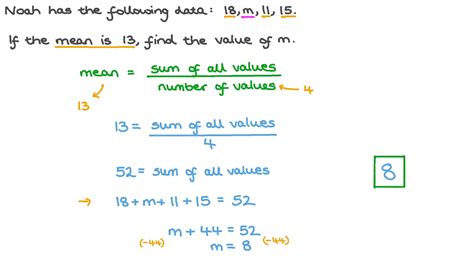 Noah has the following data: 18, m, 11, 15.
If the mean is 13, find the value of m.
mean = sum of all values / number of values
4
13
13 = sum of all values / 4
52 = sum of all values
8
→ 18 + m + 11 + 15 = 52
m + 44 = 52
(-44) m = 8 (-44)